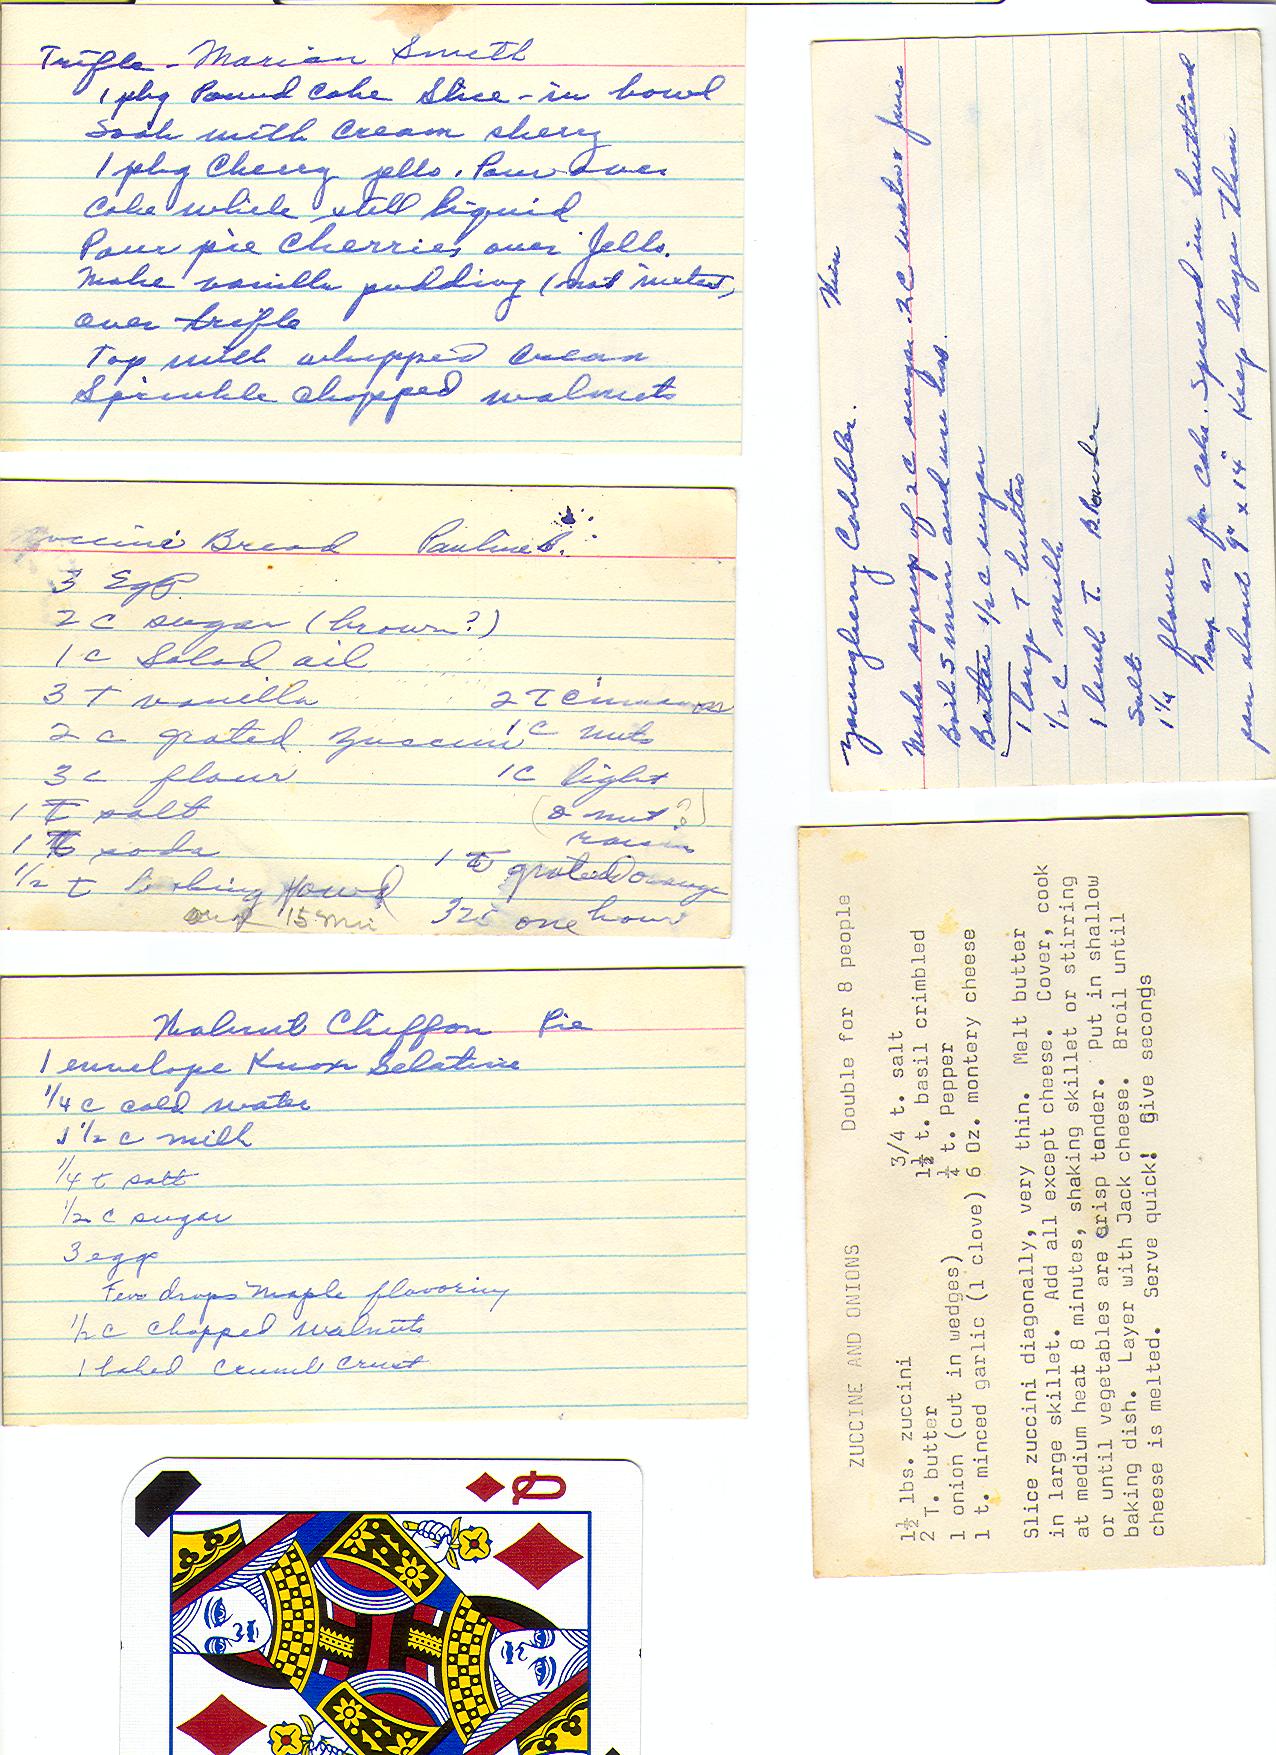 Trifle - Marian Smith
1 pkg Pound Cake Slice - in bowl
Soak with Cream sherry
1 pkg Cherry jello. Pour over
Cake while still liquid
Pour pie Cherries over Jello.
Make vanilla pudding (not instant)
over trifle
Top with whipped cream
Sprinkle chopped walnuts
Bread Pauline B.
3 Eggs
2 c sugar (brown?)
1 c Salad oil
3 T vanilla 2 T Cinnamon
2 c grated zuccini 1 C nuts
3 c flour 1 C light
1 T salt (& nut?)
raisin
1 T soda 1 t grated orange
1/2 t baking powd
15 Min 325 one hour
Walnut Chiffon Pie
1 envelope Knox Gelatine
1/4 c cold water
1 1/2 c milk
1/4 t salt
1/2 c sugar
3 eggs
Few drops Maple flavoring
1/2 c chopped walnuts
1 baked crumb crust
Q
Youngberry Cobbler.
Make syrup of 2 C sugar. 2 C water & juice
Boil 5 min and use hot.
Batter 1/2 c sugar
1 large T butter
1/2 c milk
1 level T. B. Powder
Salt
1 1/4 flour
as for Cake. Spread in buttered
pan about 9" x 14" Keep layer thin
ZUCCINE AND ONIONS Double for 8 people
1½ lbs. zuccini 3/4 t. salt
2 T. butter 1½ t. basil crimbled
1 onion (cut in wedges) ¼ t. Pepper
1 t. minced garlic (1 clove) 6 Oz. montery cheese
Slice zuccini diagonally, very thin. Melt butter
in large skillet. Add all except cheese. Cover, cook
at medium heat 8 minutes, shaking skillet or stirring
or until vegetables are crisp tender. Put in shallow
baking dish. Layer with Jack cheese. Broil until
cheese is melted. Serve quick! Give seconds